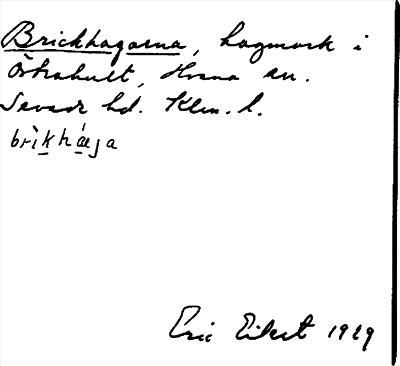 Brickhagarna, hagmark i
Örkahult, Hvena sn.
Sevede hd. Klm. l.
brikhæja
Eric Eilert 1929